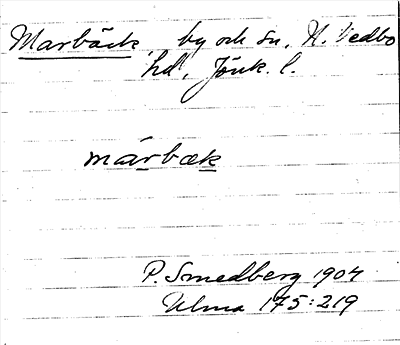 Marbäck by och sn, N. Vedbo
hd, Jönk. l.
márbæk
P. Smedberg 1904
Ulma 175:219